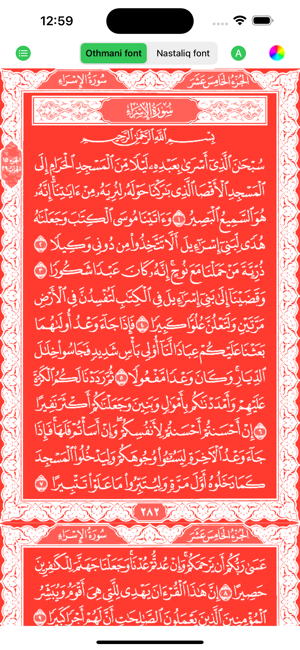 12:59
Othmani font
Nastaliq font
A
سُورَةُ الإِسْرَاءِ
الجُزْءُ الخَامِسَ عَشَرَ
سُورَةُ الإِسْرَاءِ
بِسْمِ اللَّهِ الرَّحْمَٰنِ الرَّحِيمِ
سُبْحَٰنَ الَّذِي أَسْرَىٰ بِعَبْدِهِ لَيْلًا مِّنَ الْمَسْجِدِ الْحَرَامِ إِلَى
الْمَسْجِدِ الْأَقْصَا الَّذِي بَٰرَكْنَا حَوْلَهُ لِنُرِيَهُ مِنْ ءَايَٰتِنَا إِنَّهُ
هُوَ السَّمِيعُ الْبَصِيرُ ١ وَءَاتَيْنَا مُوسَى الْكِتَٰبَ وَجَعَلْنَٰهُ
هُدًى لِّبَنِي إِسْرَٰءِيلَ أَلَّا تَتَّخِذُوا مِن دُونِي وَكِيلًا ٢
ذُرِّيَّةَ مَنْ حَمَلْنَا مَعَ نُوحٍ إِنَّهُ كَانَ عَبْدًا شَكُورًا ٣
وَقَضَيْنَا إِلَىٰ بَنِي إِسْرَٰءِيلَ فِي الْكِتَٰبِ لَتُفْسِدُنَّ فِي الْأَرْضِ
مَرَّتَيْنِ وَلَتَعْلُنَّ عُلُوًّا كَبِيرًا ٤ فَإِذَا جَاءَ وَعْدُ أُولَىٰهُمَا
بَعَثْنَا عَلَيْكُمْ عِبَادًا لَّنَا أُولِي بَأْسٍ شَدِيدٍ فَجَاسُوا خِلَٰلَ
الدِّيَارِ وَكَانَ وَعْدًا مَّفْعُولًا ٥ ثُمَّ رَدَدْنَا لَكُمُ الْكَرَّةَ
عَلَيْهِمْ وَأَمْدَدْنَٰكُم بِأَمْوَٰلٍ وَبَنِينَ وَجَعَلْنَٰكُمْ أَكْثَرَ نَفِيرًا
٦ إِنْ أَحْسَنتُمْ أَحْسَنتُمْ لِأَنفُسِكُمْ وَإِنْ أَسَأْتُمْ فَلَهَا فَإِذَا
جَاءَ وَعْدُ الْءَاخِرَةِ لِيَسُـُٔوا وُجُوهَكُمْ وَلِيَدْخُلُوا الْمَسْجِدَ
كَمَا دَخَلُوهُ أَوَّلَ مَرَّةٍ وَلِيُتَبِّرُوا مَا عَلَوْا تَتْبِيرًا ٧
٢٨٢
سُورَةُ الإِسْرَاءِ
الجُزْءُ الخَامِسَ عَشَرَ
عَسَىٰ رَبُّكُمْ أَن يَرْحَمَكُمْ وَإِنْ عُدتُّمْ عُدْنَا وَجَعَلْنَا جَهَنَّمَ لِلْكَٰفِرِينَ
حَصِيرًا ٨ إِنَّ هَٰذَا الْقُرْءَانَ يَهْدِي لِلَّتِي هِيَ أَقْوَمُ وَيُبَشِّرُ
الْمُؤْمِنِينَ الَّذِينَ يَعْمَلُونَ الصَّٰلِحَٰتِ أَنَّ لَهُمْ أَجْرًا كَبِيرًا ٩